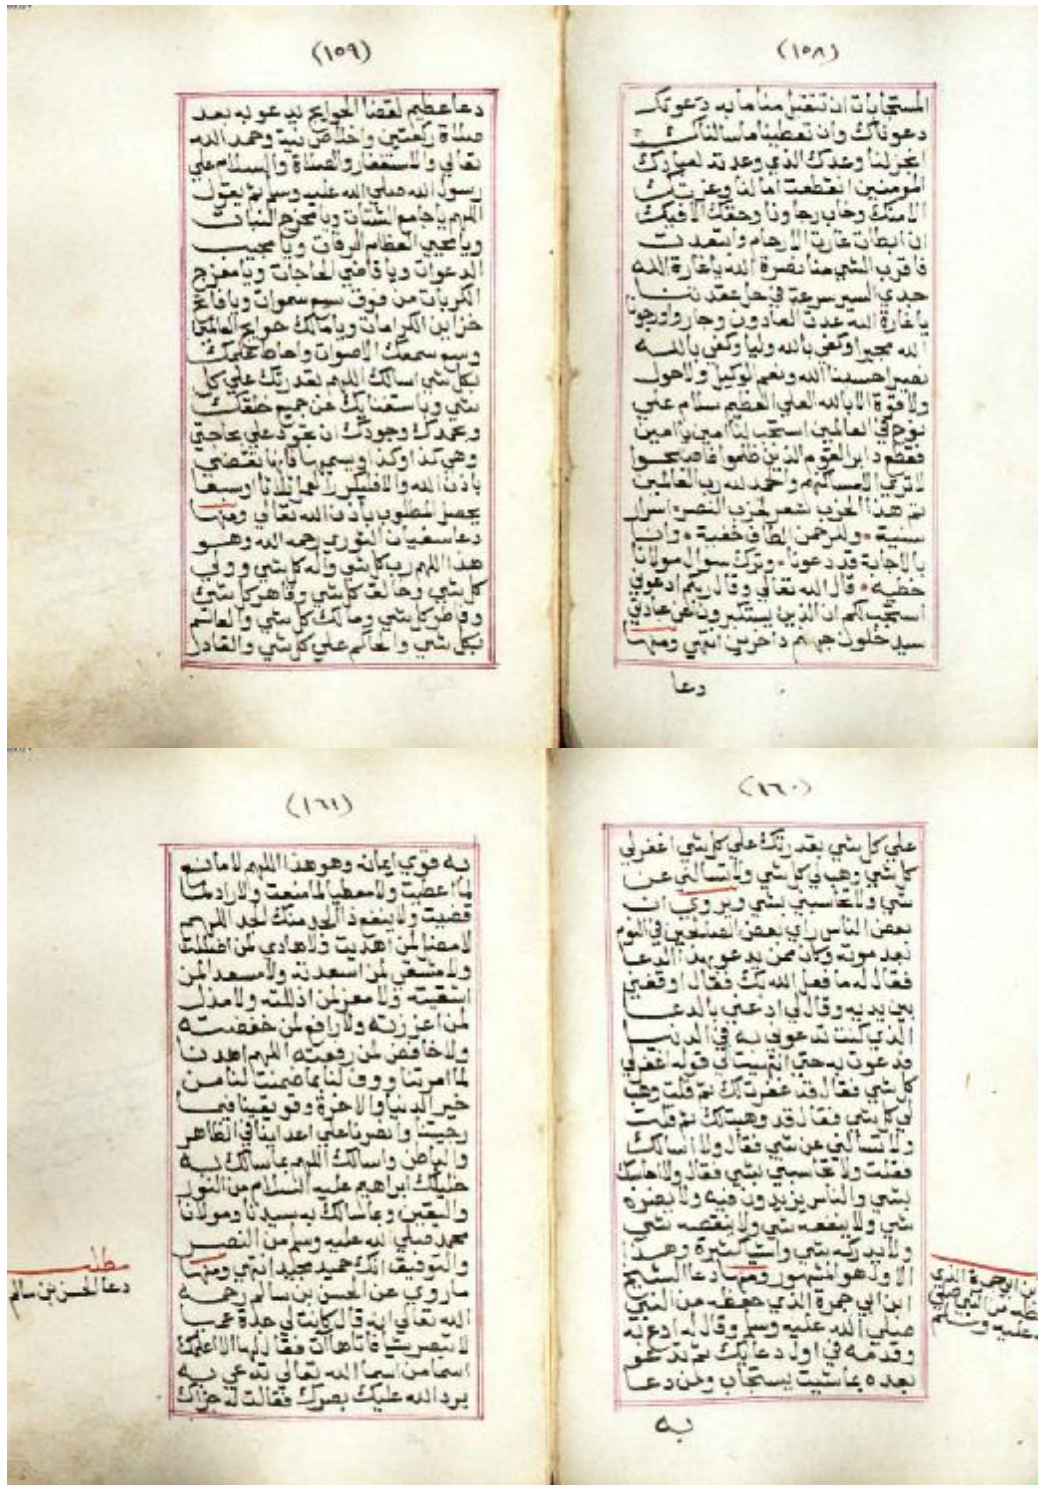 (١٥٨)
المستجابات ان تتقبل منا ما به دعوتك
دعوناك وان تعطينا ما سالناك
انجز لنا وعدك الذي وعدته لعبادك
المومنين انقطعت امالنا وعزتك
الا منك وخاب رجاونا وحقك الا فيك
ان ابطات غارة الارحام وابتعدت
فاقرب الشي منا نصرة الله يا غارة الله
جدي السير سرعة في حل عقدتنا
يا غارة الله عدت العادون وجاروا ورجونا
الله مجيرا وكفي بالله وليا وكفي بالله
نصيرا حسبنا الله ونعم الوكيل ولا حول
ولا قوة الا بالله العلي العظيم سلام علي
نوح في العالمين استجب لنا امين يا امين
فقطع دابر القوم الذين ظلموا فاصبحوا
لا تري الا مساكنهم والحمد لله رب العالمين
تم هذا الحزب شعر لحزب النصر اسرار
سنية وللرحمن الطاف خفية وانا
بالاجابة قد دعونا وترك سوال مولانا
خطيه قال الله تعالي وقال ربكم ادعوني
استجب لكم ان الذين يستكبرون عن عبادتي
سيدخلون جهنم داخرين انتهي ومنها
دعا
(١٥٩)
دعا عظيم لقضا الحوايج يدعو به بعد
صلاة ركعتين واخلاص نية وحمد الله
تعالي والاستغفار والصلاة والسلام علي
رسول الله صلي الله عليه وسلم ثم يقول
اللهم يا جامع الشتات ويا مخرج النبات
ويا محيي العظام الرفات ويا مجيب
الدعوات ويا قاضي الحاجات ويا مفرج
الكربات من فوق سبع سموات ويا فاتح
خزاين الكرامات ويا مالك حوايج العالمين
وسع سمعك الاصوات واحاط علمك
بكل شي اسالك اللهم بقدرتك علي كل
شي وباستغنايك عن جميع خلقك
وبحمدك وجودك ان تجود علي بحاجتي
وهي كذا وكذا ويسميها فانها تقضي
باذن الله والا فليكرر العمل ثلاثا او سبعا
يحصل المطلوب باذن الله تعالي ومنها
دعا سفيان الثوري رحمه الله وهو
هذا اللهم رب كل شي واله كل شي وولي
كل شي وخالق كل شي وقاهر كل شي
وفاطر كل شي ومالك كل شي والعالم
بكل شي والحاكم علي كل شي والقادر
(١٦٠)
علي كل شي بقدرتك علي كل شي اغفر لي
كل شي وهب لي كل شي ولا تسالني عن
شي ولا تحاسبني بشي ويروي ان
بعض الناس راي بعض الصالحين في النوم
بعد موته وكان ممن يدعو بهذا الدعا
فقال له ما فعل الله بك فقال اوقفني
بين يديه وقال لي ادعني بالدعا
الذي كنت تدعوني به في الدنيا
فدعوت به حتي انتهيت لي قوله اغفر لي
كل شي فقال قد غفرت لك ثم قلت وهب
لي كل شي فقال قد وهبتك ثم قلت
ولا تسالني عن شي فقال ولا اسالك
فقلت ولا تحاسبني بشي فقال ولا احاسبك
بشي والناس يزيدون فيه ولا يضره
شي ولا ينفعه شي ولا ينقصه شي
ولا يدركه شي واشيا كثيرة وهذا
الاول هو المشهور ومنها دعا الشيخ
ابن ابي جمرة الذي حفظه من النبي
صلي الله عليه وسلم وقال له ادع به
وقدمه في اول دعايك ثم تدعو
بعده بما شيت يستجاب ولمن دعا
به
ابن ابي جمرة الذي
حفظه من النبي صلي
عليه وسلم
(١٦١)
به قوي ايمانه وهو هذا اللهم لا مانع
لما اعطيت ولا معطي لما منعت ولا راد لما
قضيت ولا ينفع ذا الجد منك الجد اللهم
لا مضل لمن اهديت ولا هادي لمن اضللت
ولا مشقي لمن اسعدته ولا مسعد لمن
اشقيته ولا معز لمن اذللته ولا مذل
لمن اعززته ولا رافع لمن خفضته
ولا خافض لمن رفعته اللهم اهدنا
لما امرتنا ووف لنا بما ضمنت لنا من
خير الدنيا والاخرة وقو يقيننا فيما
رجيتنا وانصرنا علي اعداينا في الظاهر
والباطن واسالك اللهم بما سالك به
خليلك ابراهيم عليه السلام من النور
واليقين وبما سالك به سيدنا ومولانا
محمد صلي الله عليه وسلم من النصر
والتوفيق انك حميد مجيد انتهي ومنها
ما روي عن الحسن بن سالم رحمه
الله تعالي انه قال كانت لي جدة عميا
لا تبصر شيا فاتاها ات فقال لها الا اعلمك
اسما من اسما الله تعالي تدعي به
يرد الله عليك بصرك فقالت له جزاك
مطلب
دعا الحسن بن سالم